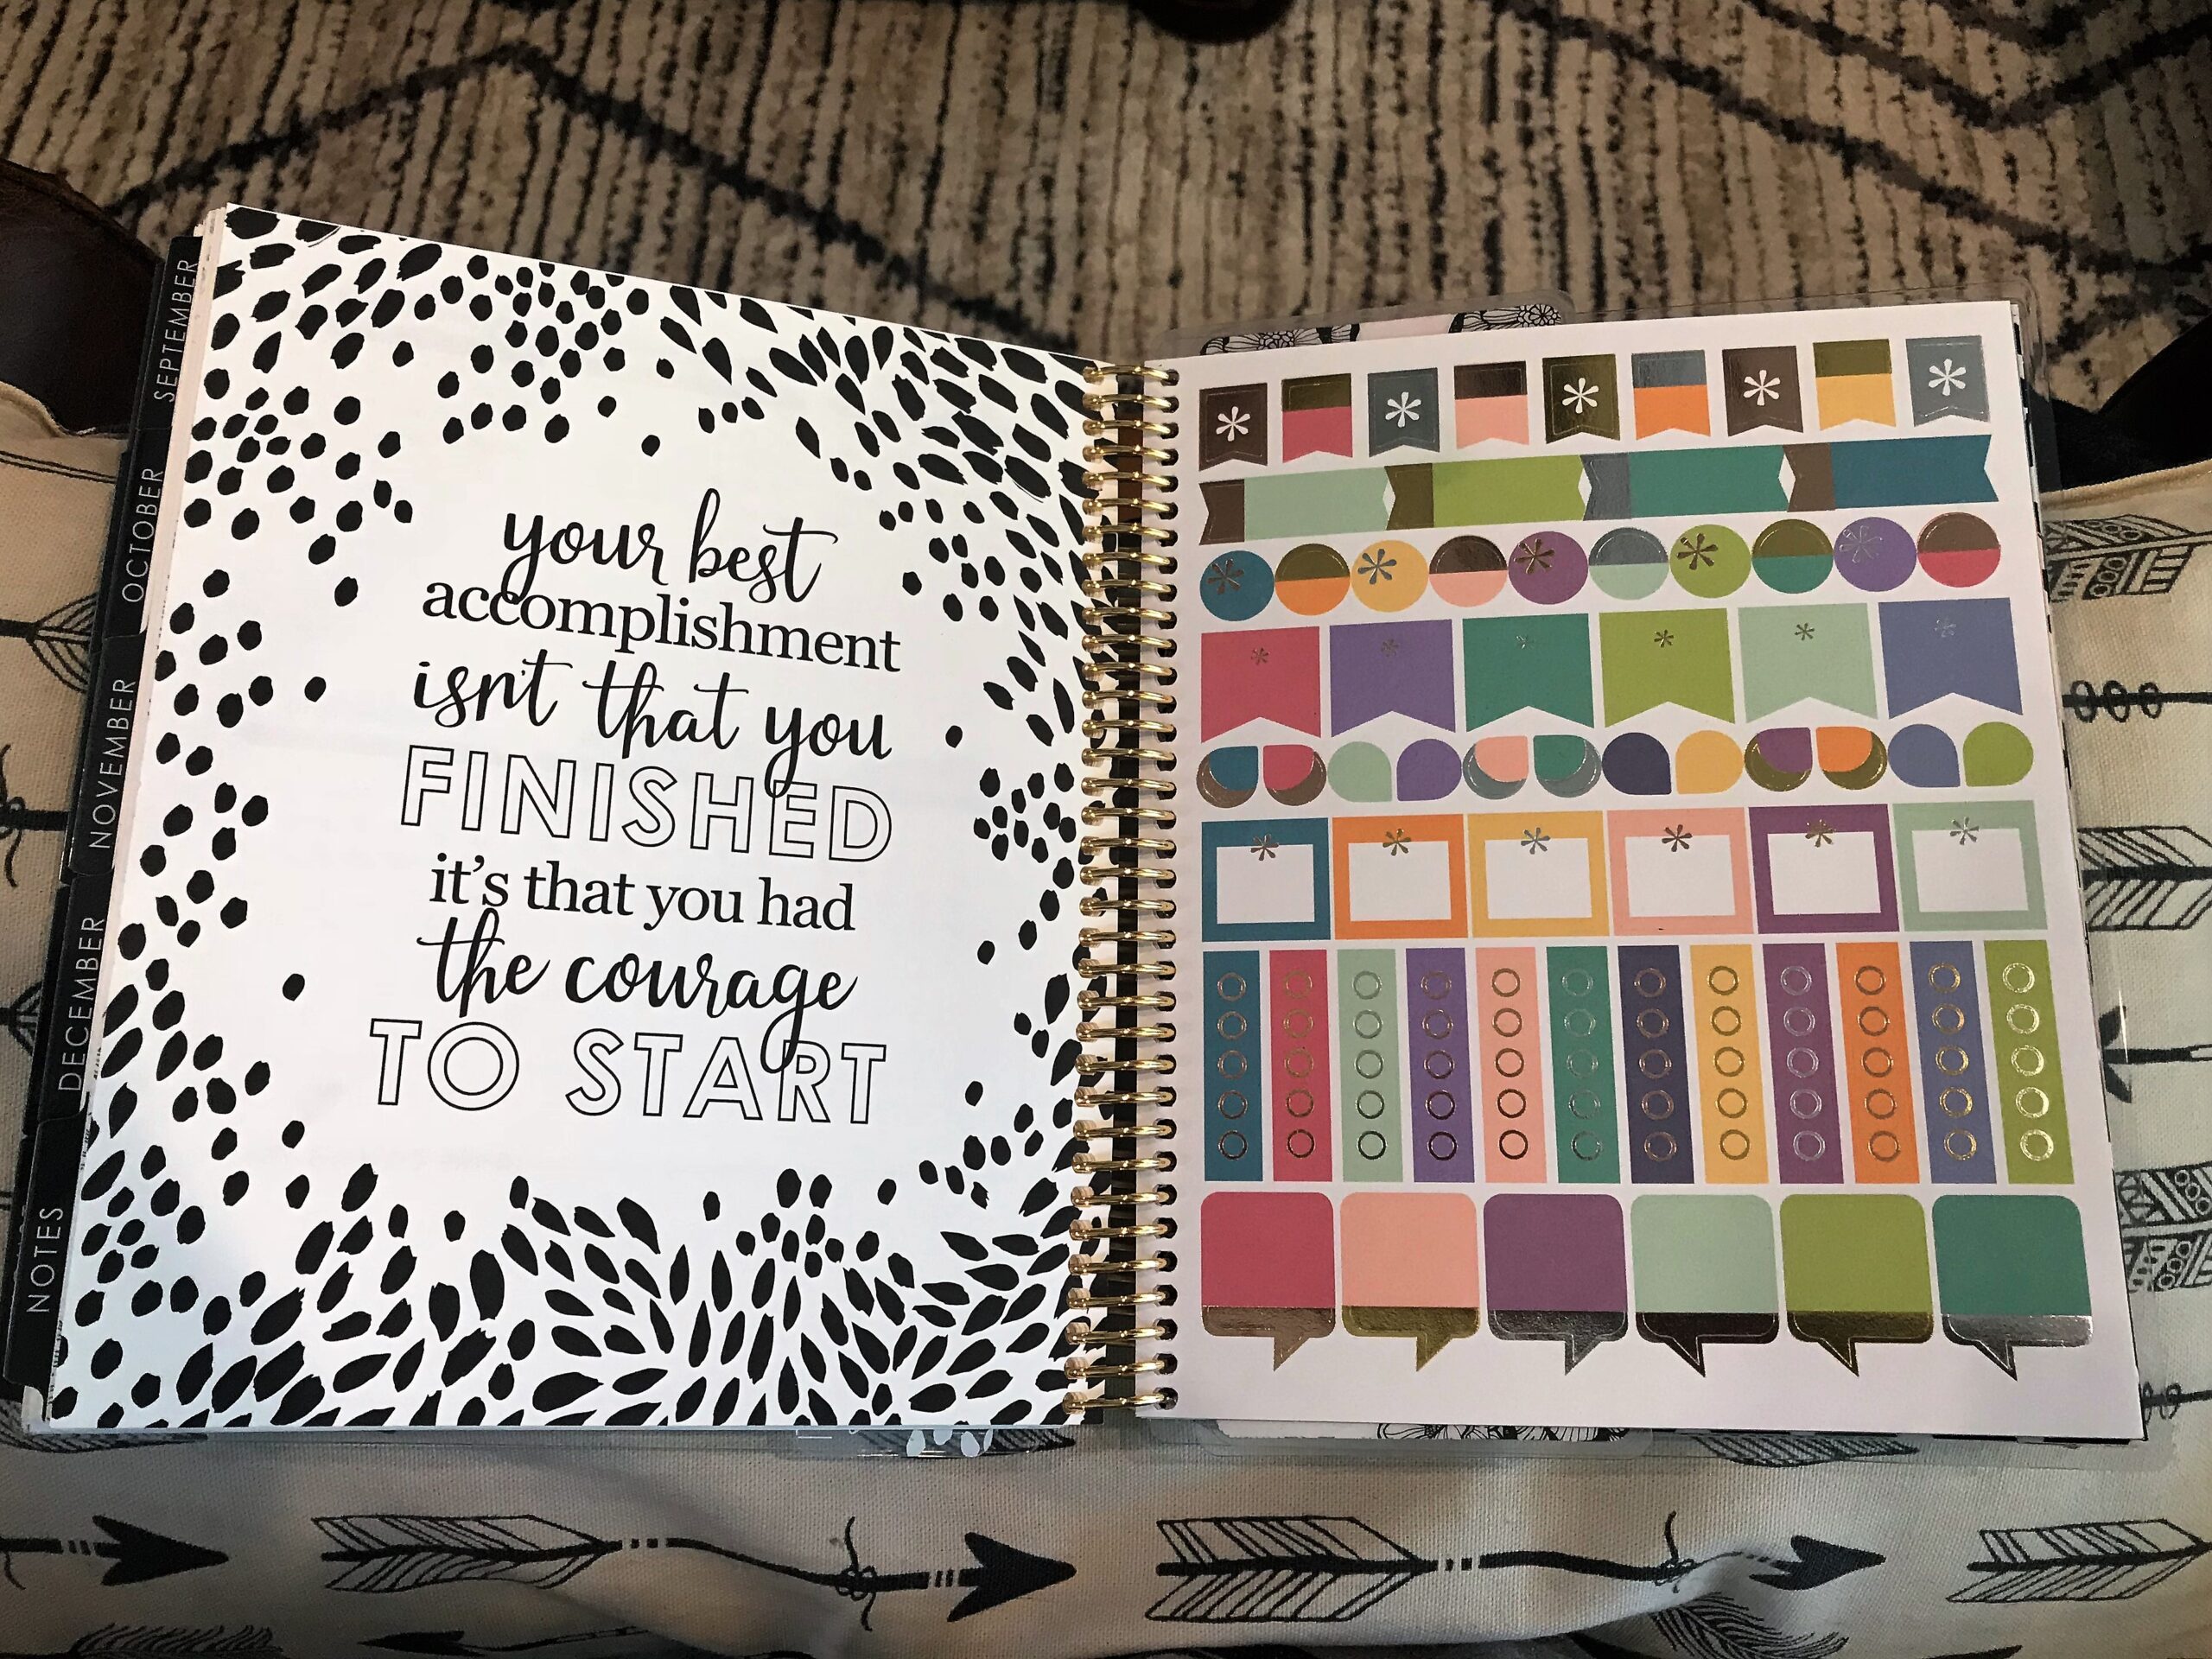 SEPTEMBER
OCTOBER
NOVEMBER
DECEMBER
NOTES
your best
accomplishment
isn't that you
FINISHED
it's that you had
the courage
TO START